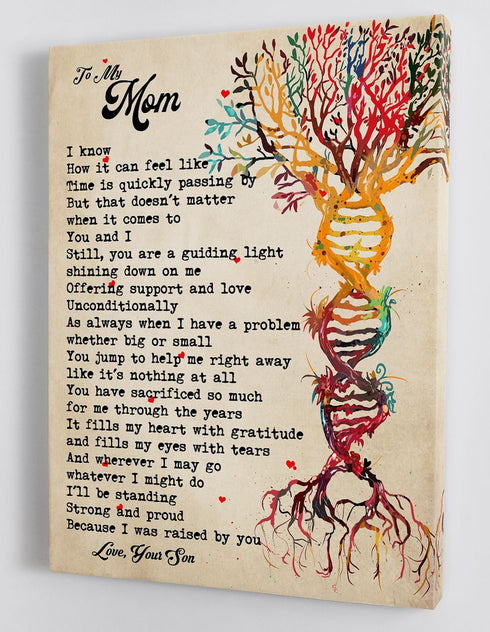 To My
Mom
I know
How it can feel like
Time is quickly passing by
But that doesn't matter
when it comes to
You and I
Still, you are a guiding light
shining down on me
Offering support and love
Unconditionally
As always when I have a problem
whether big or small
You jump to help me right away
like it's nothing at all
You have sacrificed so much
for me through the years
It fills my heart with gratitude
and fills my eyes with tears
And wherever I may go
whatever I might do
I'll be standing
Strong and proud
Because I was raised by you
Love, Your Son